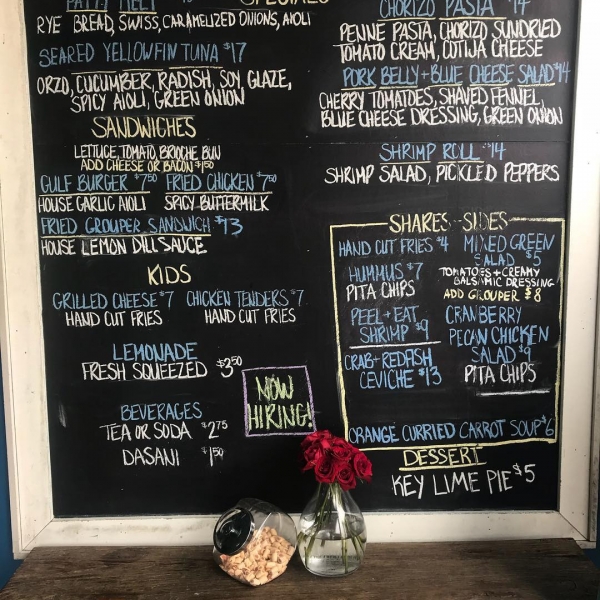 PATTY MELT
SPECIALS
RYE BREAD, SWISS, CARAMELIZED ONIONS, AIOLI
SEARED YELLOWFIN TUNA $17
ORZO, CUCUMBER, RADISH, SOY GLAZE,
SPICY AIOLI, GREEN ONION
SANDWICHES
LETTUCE, TOMATO, BRIOCHE BUN
ADD CHEESE OR BACON $1.50
GULF BURGER $7.50 FRIED CHICKEN $7.50
HOUSE GARLIC AIOLI SPICY BUTTERMILK
FRIED GROUPER SANDWICH $13
HOUSE LEMON DILL SAUCE
KIDS
GRILLED CHEESE $7 CHICKEN TENDERS $7
HAND CUT FRIES HAND CUT FRIES
LEMONADE
FRESH SQUEEZED $3.50
BEVERAGES
TEA OR SODA $2.75
DASANI $1.50
NOW
HIRING!
CHORIZO PASTA $14
PENNE PASTA, CHORIZO SUNDRIED
TOMATO CREAM, COTIJA CHEESE
PORK BELLY + BLUE CHEESE SALAD $14
CHERRY TOMATOES, SHAVED FENNEL,
BLUE CHEESE DRESSING, GREEN ONION
SHRIMP ROLL $14
SHRIMP SALAD, PICKLED PEPPERS
SHARES-SIDES
HAND CUT FRIES $4
HUMMUS $7
PITA CHIPS
PEEL + EAT
SHRIMP $9
CRAB + REDFISH
CEVICHE $13
MIXED GREEN
SALAD $5
TOMATOES + CREAMY
BALSAMIC DRESSING
ADD GROUPER $8
CRANBERRY
PECAN CHICKEN
SALAD $9
PITA CHIPS
ORANGE CURRIED CARROT SOUP $6
DESSERT
KEY LIME PIE $5